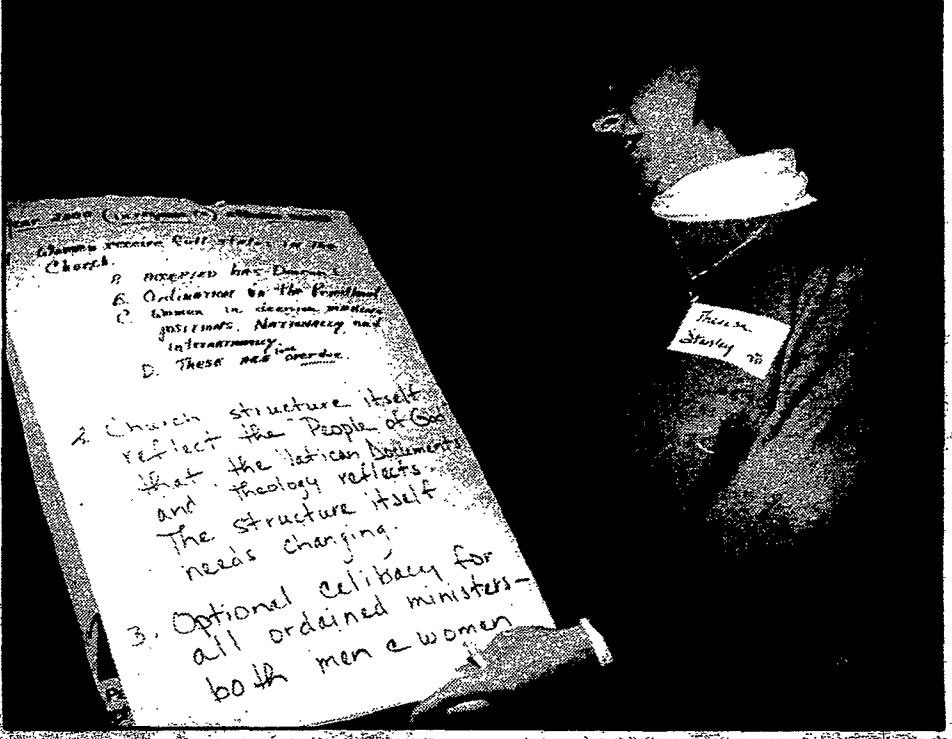 Women receive full status in the
Church.
A. Accepted has Deacons
B. Ordination to the Priesthood
C. Women in decision making
positions, Nationally and
Internationally.
D. These are overdue.
2. Church structure itself
reflect the "People of God"
that the Vatican Documents
and Theology reflects.
The structure itself
needs changing.
3. Optional celibacy for
all ordained ministers-
both men & women
Theresa
Stanley